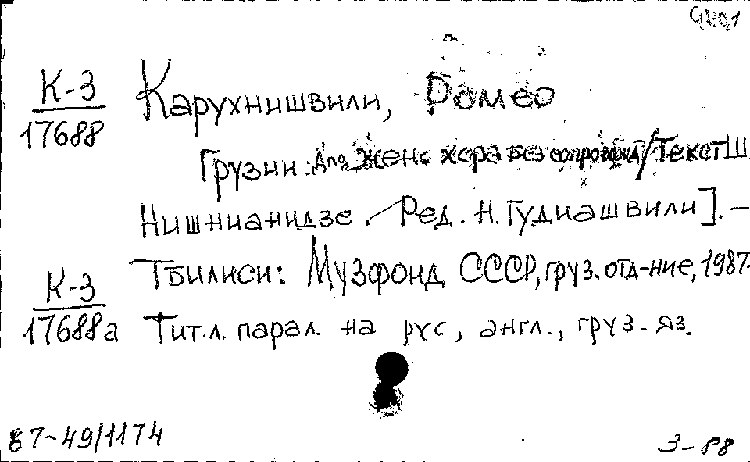 К-3
17688
Карухнишвили, Ромео
Грузии: Для женс. хора без сопровожд/Текст Ш
Нишнианидзе. Ред. Н. Гудиашвили]. —
К-3
17688а
Тбилиси: Музфонд СССР, груз. отд-ние, 1987.
Тит. л. парал. на рус, англ., груз. яз.
87-49/1174
3-88